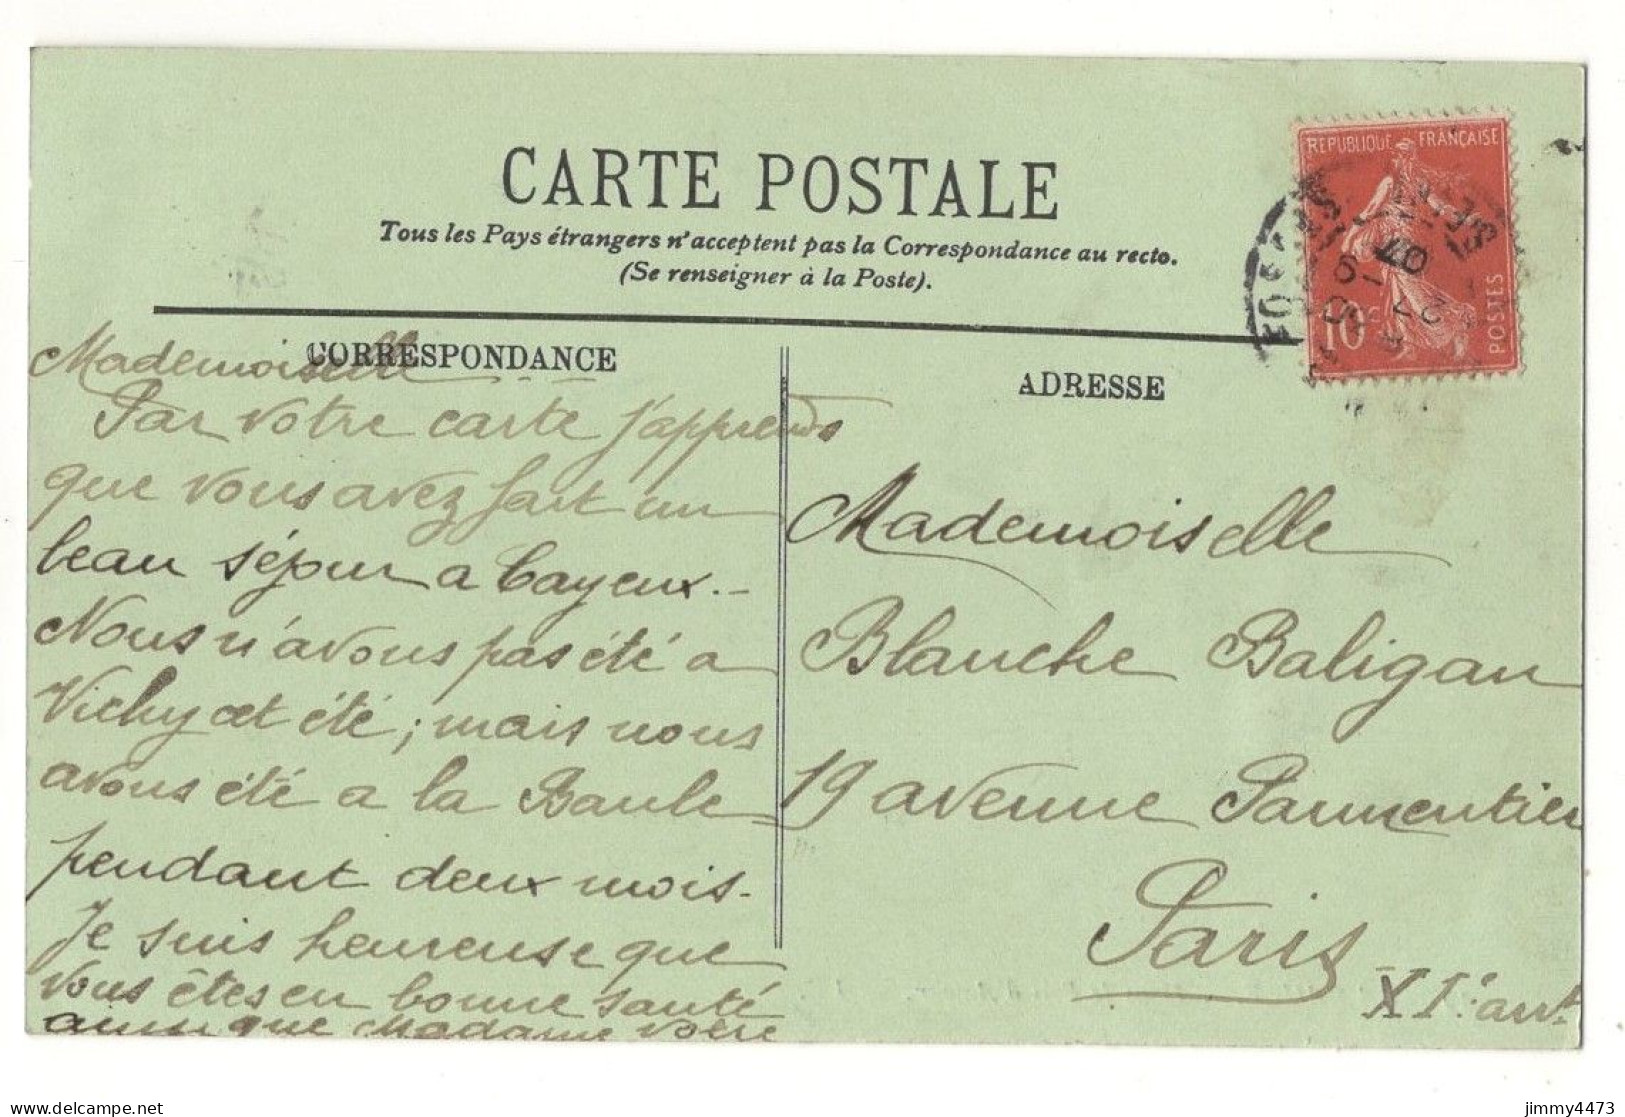 CARTE POSTALE
Tous les Pays étrangers n'acceptent pas la Correspondance au recto.
(Se renseigner à la Poste).
REPUBLIQUE FRANÇAISE
10
POSTES
07
CORRESPONDANCE
Mademoiselle
Par votre carte j'apprends
que vous avez fait un
beau séjour a Cayeux.-
Nous n'avons pas été a
Vichy cet été; mais nous
avons été a la Baule
pendant deux mois.
Je suis heureuse que
vous êtes en bonne santé
ainsi que Madame votre
ADRESSE
Mademoiselle
Blanche Baligan
19 avenue Parmentier
Paris
XIe arrt
delcampe.net
jimmy4473